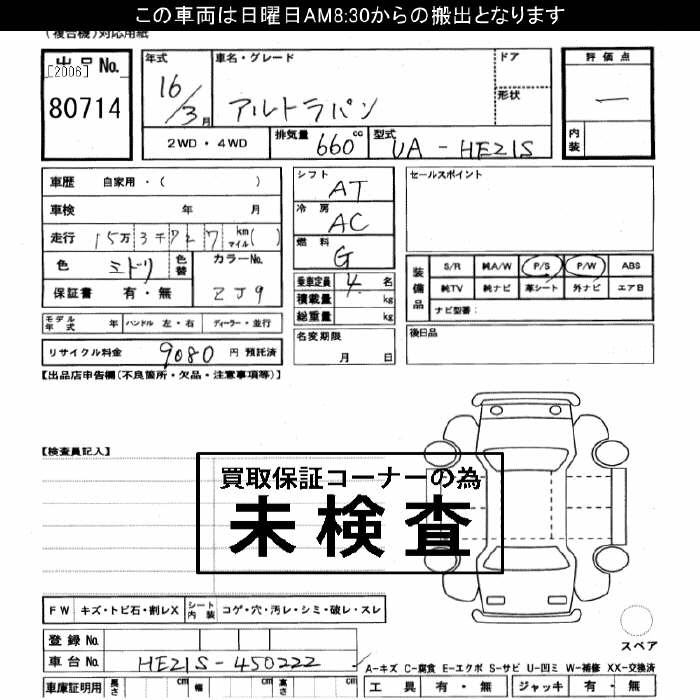 この車両は日曜日AM8:30からの搬出となります
(複合機)対応用紙
出品No.
[2006]
80714
年式
16/3月
車名・グレード
アルトラパン
ドア
形状
評価点
—
内装
2WD・4WD
排気量 660 cc
型式 UA-HE21S
車歴 自家用・( )
車検 年 月
走行 15万3千727 km マイル( )
色 ミドリ 色替
カラーNo. ZJ9
保証書 有・無
シフト AT
冷房 AC
燃料 G
乗車定員 4名
積載量 kg
総重量 kg
セールスポイント
装備品
S/R 純A/W P/S P/W ABS
純TV 純ナビ 革シート 外ナビ エアB
ナビ型番:
モデル年式 年 ハンドル 左・右 ディーラー・並行
名変期限
月 日
後日品
リサイクル料金 9080 円 預託済
【出品店申告欄(不良箇所・欠品・注意事項等)】
【検査員記入】
買取保証コーナーの為
未検査
FW キズ・トビ石・割レX シート内装 コゲ・穴・汚レ・シミ・破レ・スレ
登録No.
車台No. HE21S-450222
スペア
A-キズ C-腐食 E-エクボ S-サビ U-凹ミ W-補修 XX-交換済
車庫証明用 長さ cm 幅 cm 高さ cm
工具 有・無 ジャッキ 有・無